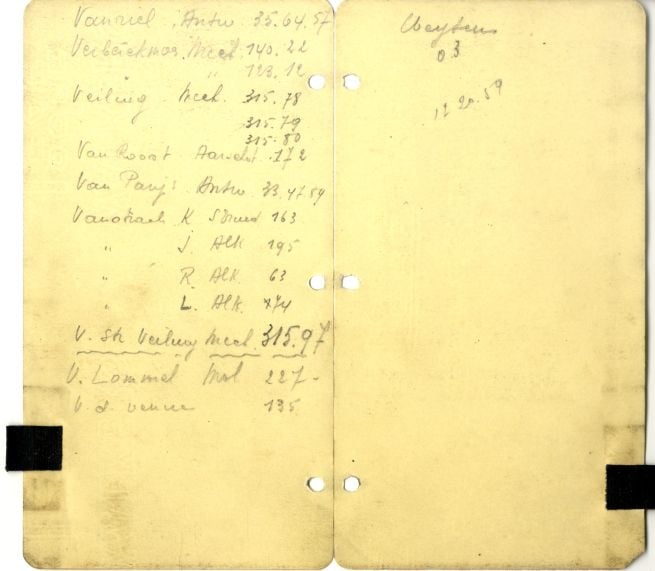 Vanriel. Antw. 35.64.57
Verbeeckmoes Mech 140.22
" 123.12
Veiling Mech. 315.78
315.79
315.80
Van Roost 172
Van Parijs Antw. 33.47.59
K 163
" J. Alk 195
" R. Alk. 63
" L. Alk. 174
V. St. Veiling Mech. 315.97
V. Lommel Mol 227-
V. d. venne 135
03
12 20.59